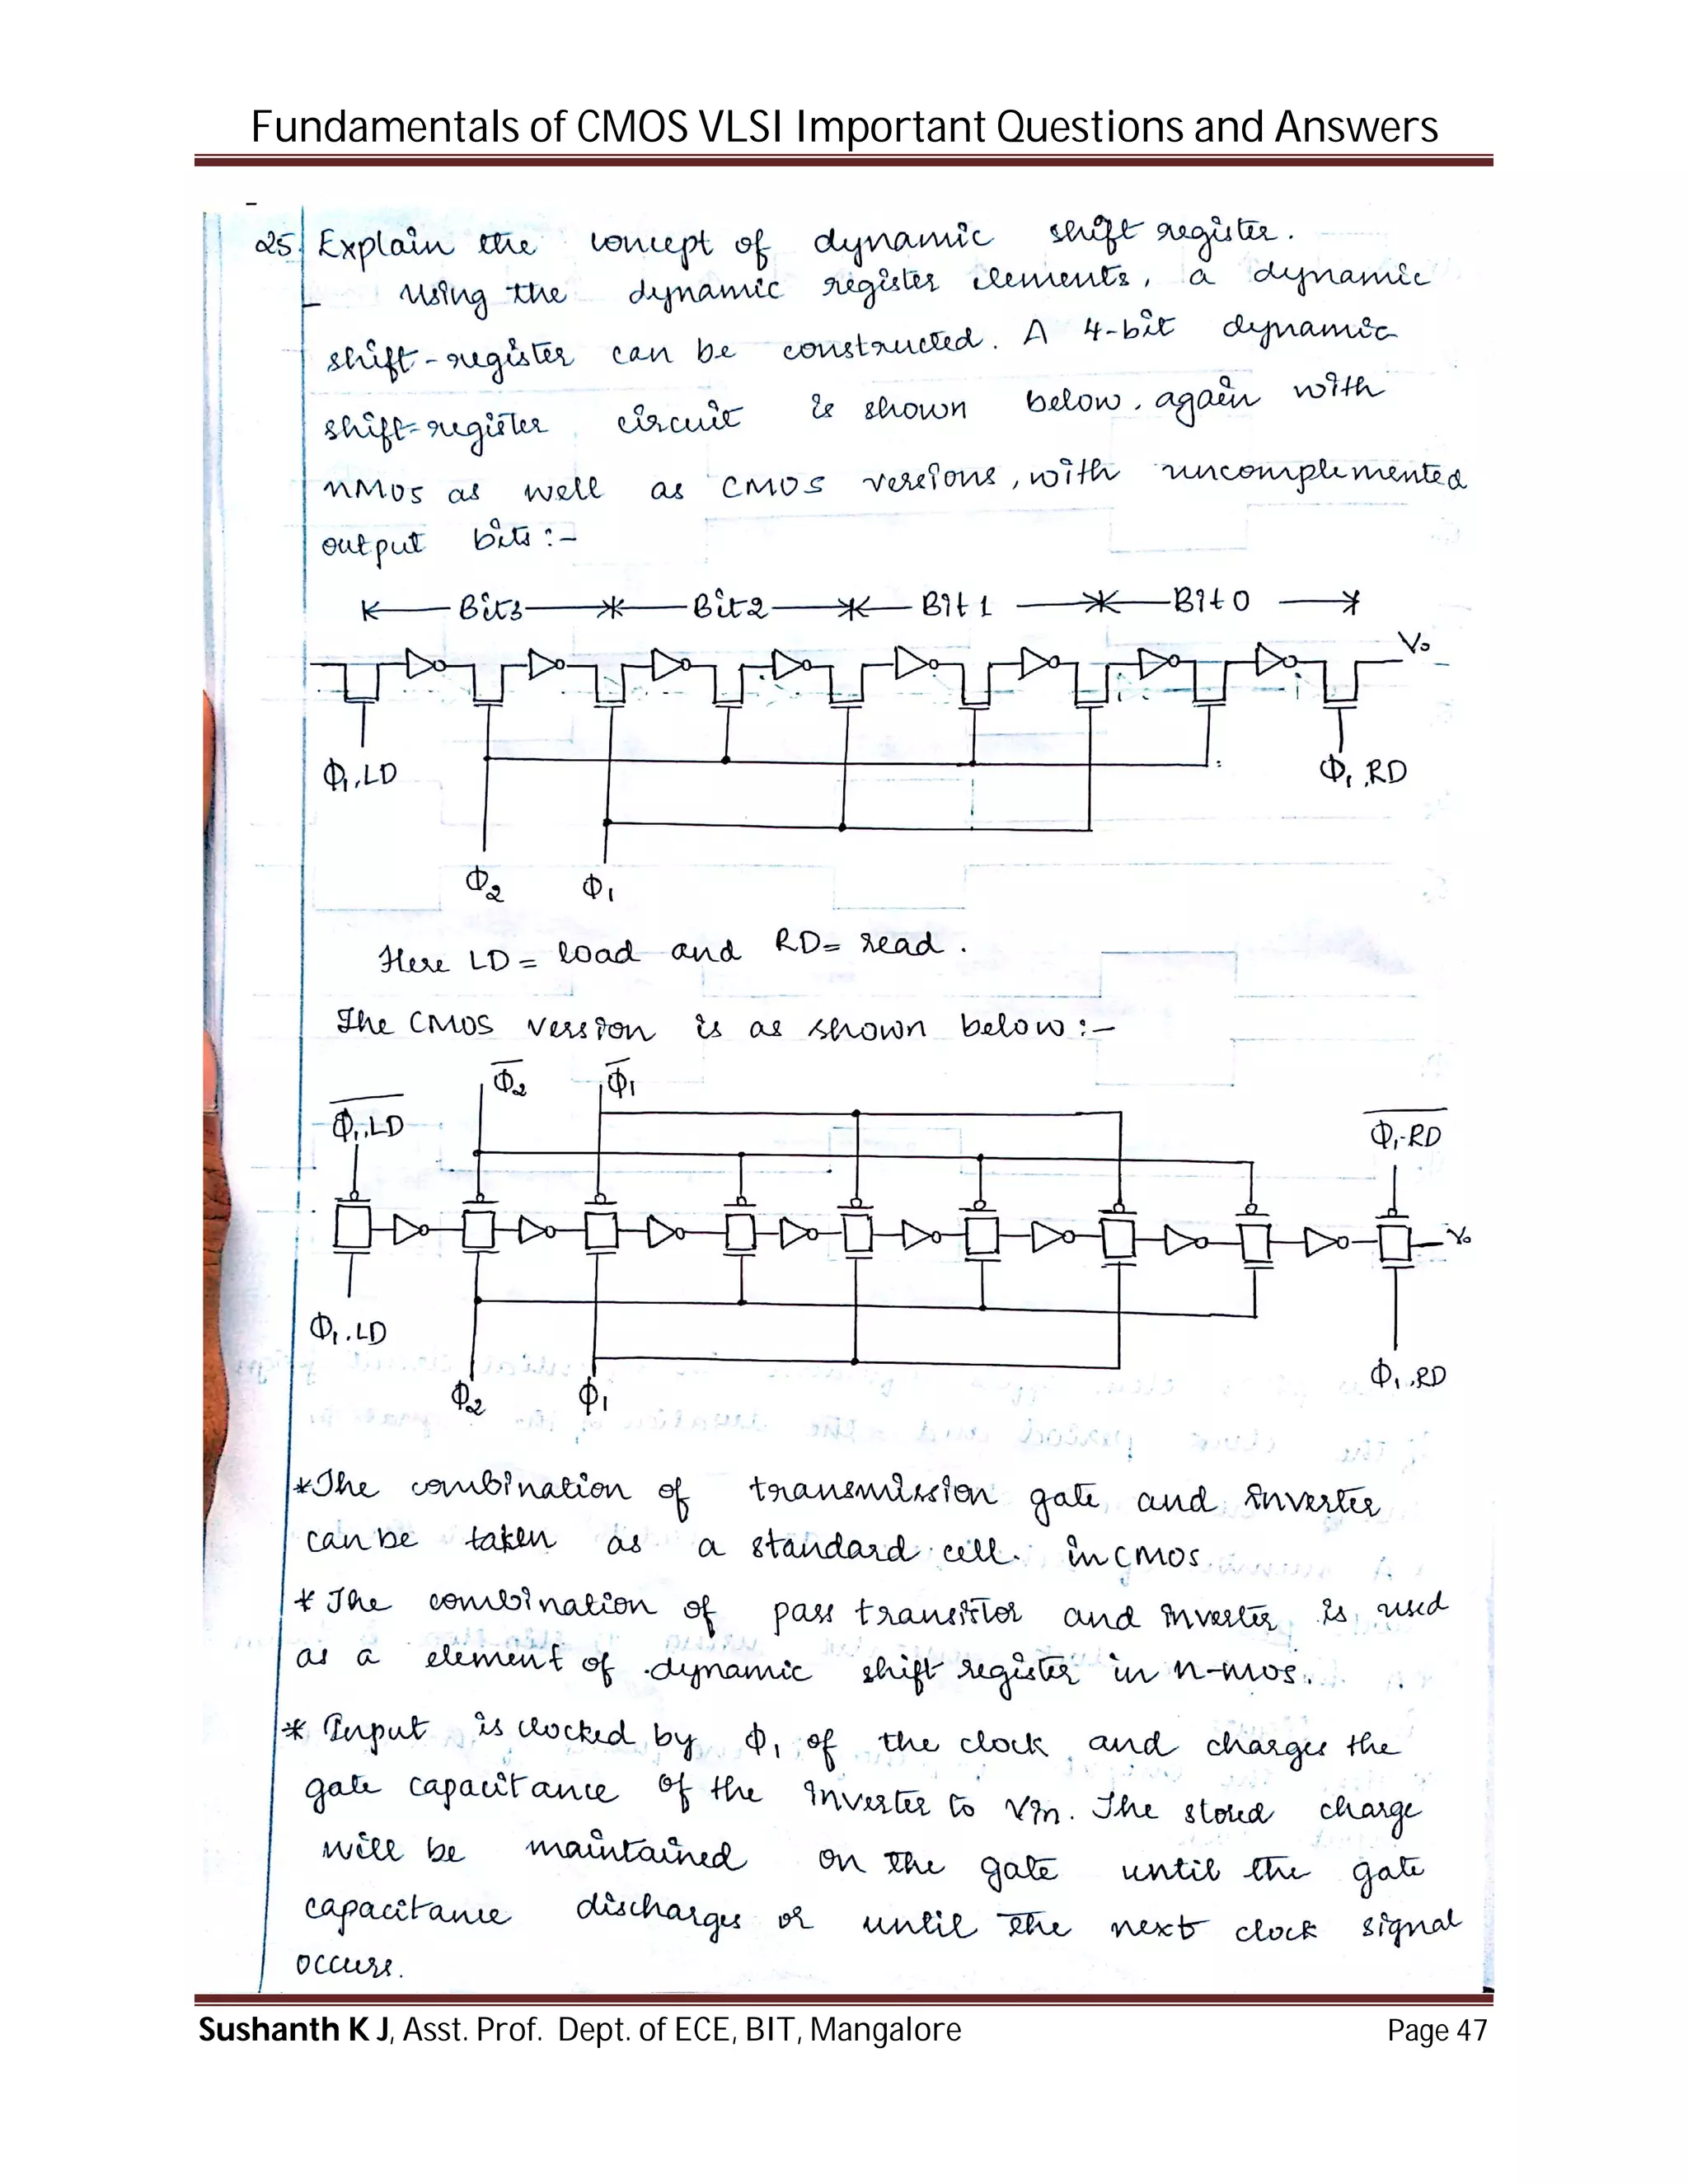 Fundamentals of CMOS VLSI Important Questions and Answers
25. Explain the concept of dynamic shift register.
Using the dynamic register elements, a dynamic
shift-register can be constructed. A 4-bit dynamic
shift-register circuit is shown below. again with
nMOS as well as CMOS versions, with uncomplemented
output bits :-
Bit3 Bit2 Bit 1 Bit 0
V₀
Φ₁.LD Φ₁.RD
Φ₂ Φ₁
Here LD = load and RD = read.
The CMOS version is as shown below :-
Φ̅₂ Φ̅₁
Φ₁.LD Φ₁.RD
V₀
Φ₁.LD Φ₁.RD
Φ₂ Φ₁
*The combination of transmission gate and inverter
can be taken as a standard cell. in CMOS.
* The combination of pass transistor and inverter is used
as a element of dynamic shift register in n-mos.
* Input is clocked by Φ₁ of the clock and charges the
gate capacitance of the inverter to Vin. The stored charge
will be maintained on the gate until the gate
capacitance discharges or until the next clock signal
occurs.
Sushanth K J, Asst. Prof. Dept. of ECE, BIT, Mangalore Page 47